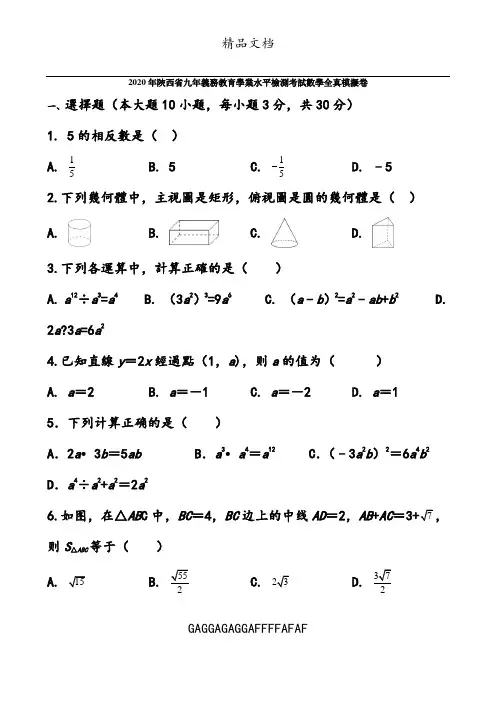 精品文档
2020年陝西省九年義務教育學業水平檢測考試數學全真模擬卷
一、選擇題（本大題10小題，每小題3分，共30分）
1. 5的相反數是（ ）
A. 1/5 B. 5 C. －1/5 D. －5
2.下列幾何體中，主視圖是矩形，俯視圖是圓的幾何體是（ ）
A. B. C. D.
3.下列各運算中，計算正確的是（ ）
A. a¹²÷a³=a⁴ B. （3a²）³=9a⁶ C. （a－b）²=a²－ab+b² D.
2a?3a=6a²
4.已知直線y＝2x經過點（1，a），则a的值为（ ）
A. a＝2 B. a＝－1 C. a＝－2 D. a＝1
5．下列计算正确的是（ ）
A．2a• 3b＝5ab B．a³• a⁴＝a¹² C．（－3a²b）²＝6a⁴b²
D．a⁴÷a²+a²＝2a²
6.如图，在△ABC中，BC＝4，BC边上的中线AD＝2，AB+AC＝3+√7，
则S△ABC等于（ ）
A. √15 B. √55/2 C. 2√3 D. 3√7/2
GAGGAGAGGAFFFFAFAF